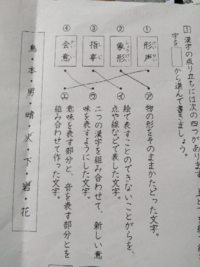 1 漢字の成り立ちには次の四つがあります。
字を　から選んで書きましょう。
① 形声
② 象形
③ 指事
④ 会意
物の形をそのままかたどった文字。
絵で表すことのできないことがらを、
点や線などで表した文字。
二つの漢字を組み合わせて、新しい意
味を表すようにした文字。
意味を表す部分と、音を表す部分とを
組み合わせて作った文字。
鳥・本・男・晴・火・下・岩・花